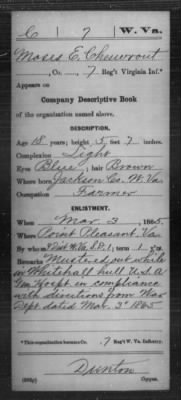 C 7 W. Va.
Moses E. Cheuvront
, Co. , 7 Reg't Virginia Inf.*
Appears on
Company Descriptive Book
of the organization named above.
DESCRIPTION.
Age 18 years; height 5 feet 7 inches.
Complexion Light
Eyes Blue; hair Brown
Where born Jackson Co. W. Va.
Occupation Farmer
ENLISTMENT.
When Mar. 3, 1865.
Where Point Pleasant, Va.
By whom ; term 1 y'rs.
Remarks Mustered out while
in Whitehall U.S.A.
Hospt in compliance
with directions from War
Dept. dated Mar. 3d 1865
*This organization became Co. , 7 Reg't W. Va. Infantry.
Dunton
Copyist.